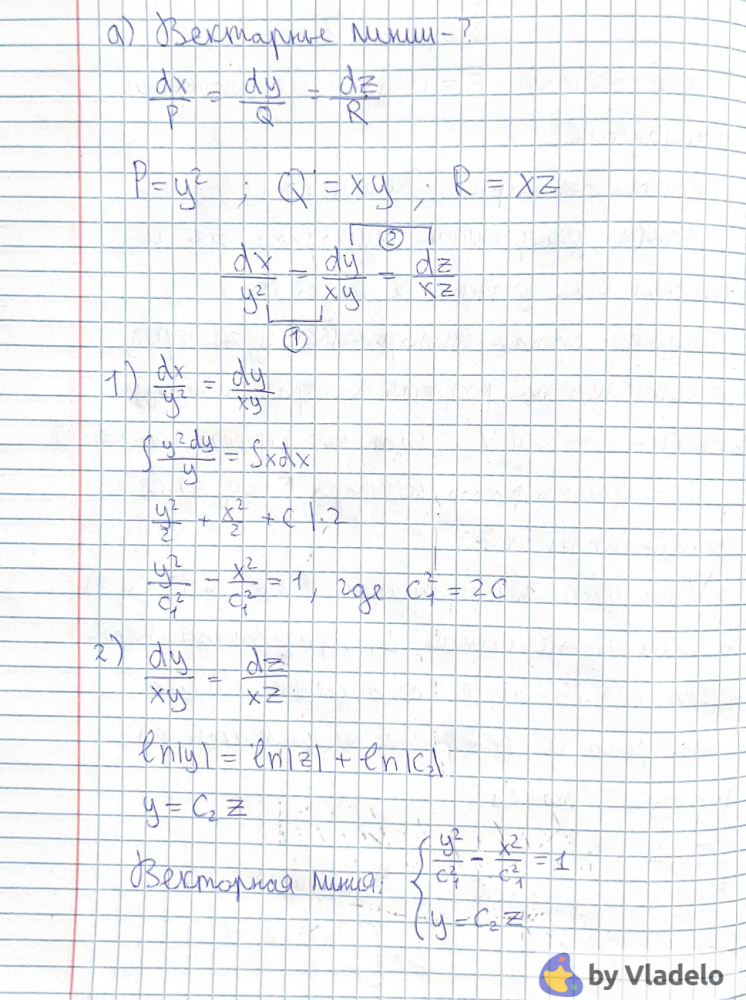 а) Векторные линии - ?
dx/P = dy/Q = dz/R
P = y² ; Q = xy ; R = xz
②
dx/y² = dy/xy = dz/xz
①
1) dx/y² = dy/xy
∫ y²dy/y = ∫xdx
y²/2 + x²/2 + C |·2
y²/c₁² - x²/c₁² = 1, где c₁² = 2C
2) dy/xy = dz/xz
ln|y| = ln|z| + ln|c₂|
y = c₂ z
Векторная линия: { y²/c₁² - x²/c₁² = 1
y = c₂ z
by Vladelo